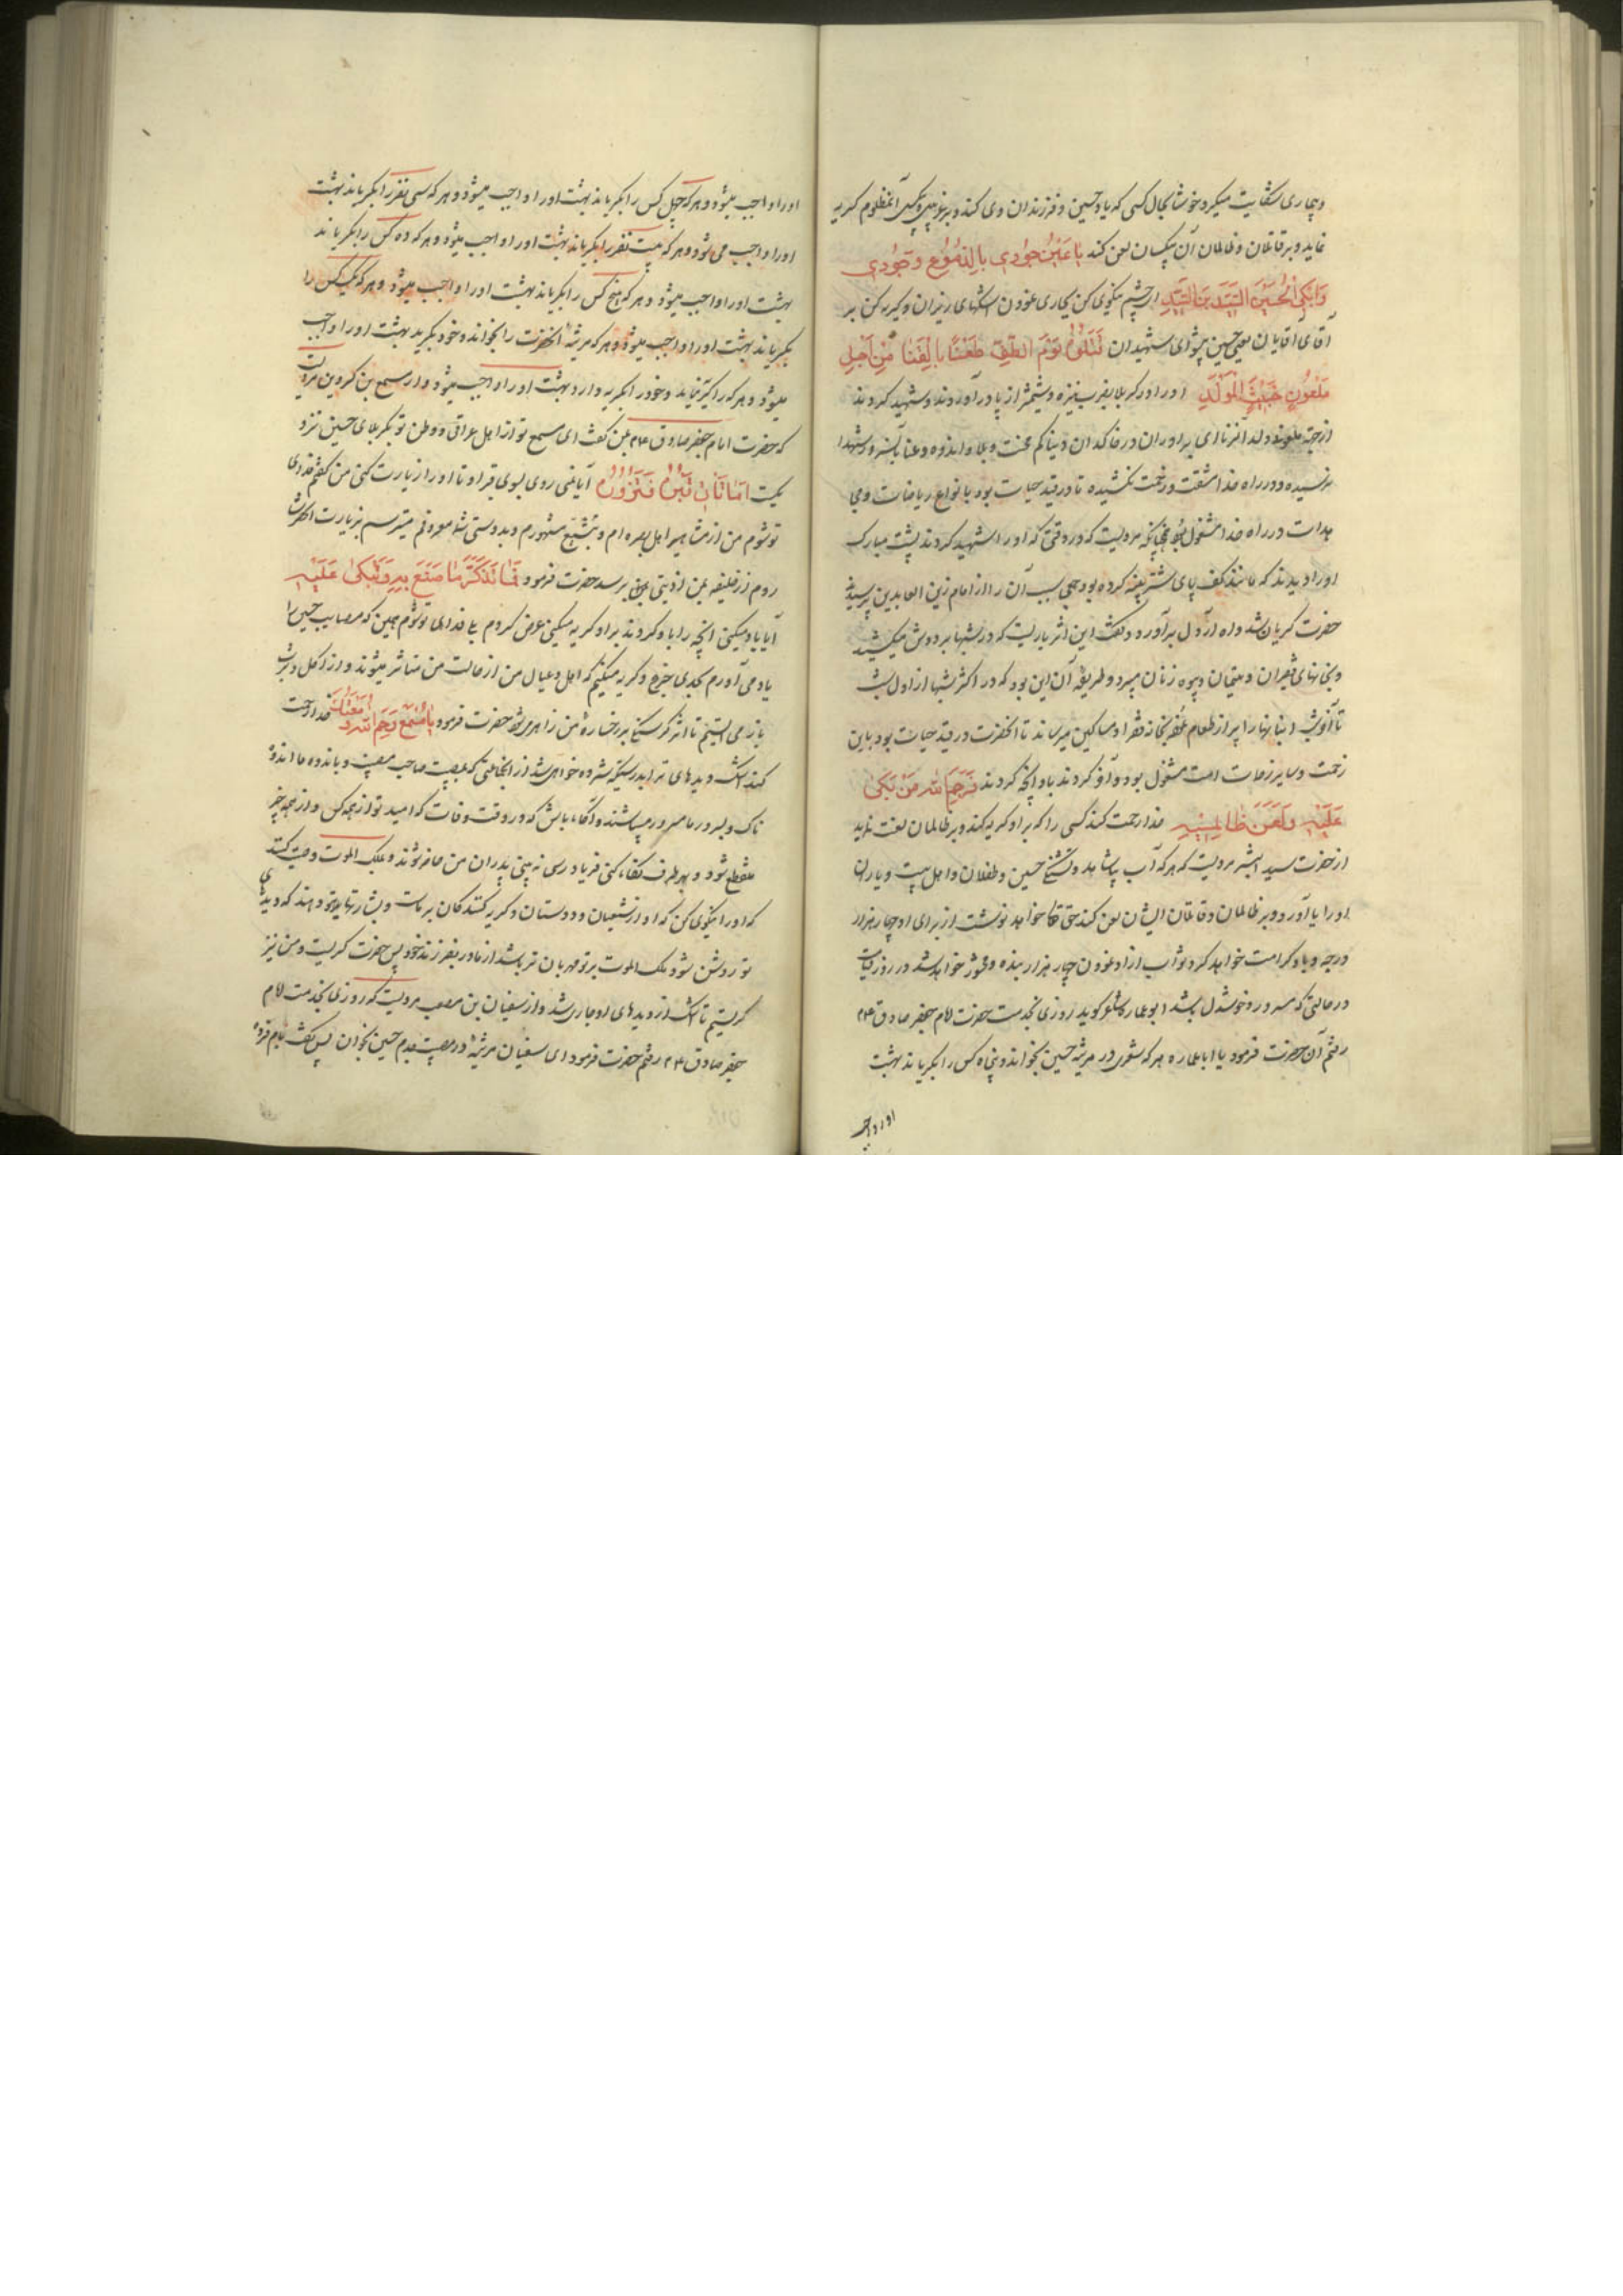 وبیماری شکایت میکرد خوشا بحال کسی که یاد حسین و فرزندان وی کند و بر غریبی و بیکسی آنمظلوم گریه
نماید و بر قاتلان و ظالمان آن بیکسان لعن کند یا عَیْنُ جُودِی بِالدُّمُوْعِ وَجُوْدِی
وَابْکِی الْحُسَیْنَ السَّیِّدَ بْنَ السَّیِّدِ ای چشم نیکوی کن بجاری نمودن اشکهای ریزان و گریه کن بر
آقای آقایان یعنی حسین پیشوای شهیدان قَتَلُوْهُ یَوْمَ الطَّفِّ طَعْنًا بِالْقَنَا مِنْ اَجْلِ
مَلْعُوْنٍ خَبِیْثِ الْمَوْلِدِ اورا در کربلا بضرب نیزه و شمشیر از پا در آوردند و شهید کردند
از جهة ملعون ولد الزنا ای برادران در خاکدان دنیا کم محنت و بلا و اندوه و عنا بآنسرور شهدا
نرسیده و در راه خدا مشقت و زحمت نکشیده تا در قید حیات بود بانواع ریاضات و مجا
هدات در راه خدا مشغول بود چنانکه مرویست که در وقتی که اورا شهید کردند پشت مبارک
اورا دیدند که مانند کف پای شتر پینه کرده بود جمعی سبب آن را از امام زین العابدین پرسیدند
حضرت گریان شد و آه از دل برآورد و گفت این اثر باریست که در شبها بر دوش میکشید
و بخانهای فقیران و یتیمان و بیوه زنان میبرد و طریقه آن این بود که در اکثر شبها از اول شب
تا آخر شب انبانها را پر از طعام نموده بخانه فقرا و مساکین میرساند تا آنحضرت در قید حیات بود باین
زحمت و سایر زحمات امت مشغول بود و آخر کردند باو آنچه کردند فَرَحِمَ اللّٰهُ مَنْ بَکٰی
عَلَیْهِ وَلَعَنَ ظَالِمِیْهِ خدا رحمت کند کسی را که بر او گریه کند و بر ظالمان لعنت نماید
از حضرت سید البشر مرویست که هر که آب بیاشامد و تشنگی حسین و طفلان و اهل بیت و یاران
اورا یاد آورد و بر ظالمان و قاتلان ایشان لعن کند حق تعالی خواهد نوشت از برای او چهار هزار
درجه و باو کرامت خواهد کرد ثواب ازاد نمودن چهار هزار بنده و محشور خواهد شد در روز قیامت
در حالتی که مسرور و خوشدل باشد ابو عماره شاعر گوید روزی بخدمت حضرت امام جعفر صادق ع
رفتم آن حضرت فرمود یا ابا عماره هر که شعری در مرثیه حسین بخواند و پنجاه کس را بگریاند بهشت
اورا واجب
اورا واجب میشود و هر که چهل کس را بگریاند بهشت اورا واجب میشود و هر که سی نفر را بگریاند بهشت
اورا واجب می شود و هر که بیست نفر را بگریاند بهشت اورا واجب میشود و هر که ده کس را بگریاند
بهشت اورا واجب میشود و هر که پنج کس را بگریاند بهشت اورا واجب میشود و هر که یک کس را
بگریاند بهشت اورا واجب میشود و هر که مرثیه آنحضرت را بخواند و خود بگرید بهشت اورا واجب
میشود و هر که را گریه نیاید و خود را بگریه وارد بهشت اورا واجب میشود و از مسمع بن کردین مرویست
که حضرت امام جعفر صادق ع بمن گفت ای مسمع تو از اهل عراقی و وطن تو بکربلای حسین نزد
یکست اَمَا تَاْتِیْ قَبْرَهُ فَتَزُوْرُهُ آیا نمی روی بسوی قبر او تا اورا زیارت کنی من گفتم فدای
تو شوم من از مشاهیر اهل بصره ام و بتشیع مشهورم و بدوستی شما معروفم میترسم بزیارت آنحضرت
روم از خلیفه بمن اذیتی برسد حضرت فرمود فَمَا تَذَکَّرُ مَا صَنَعَ بِهِ وَتَبْکِیْ عَلَیْهِ
آیا یاد میکنی آنچه را باو کردند بر او گریه میکنی عرض کردم بلی فدای تو شوم همین که مصایب حسین را
یاد می آورم بحدی جزع و گریه میکنم که اهل و عیال من از حالت من متاثر میشوند و از اکل و شرب
باز می ایستم تا اثر گرسنگی بر رخساره من ظاهر میشود حضرت فرمود یَا مِسْمَعُ رَحِمَ اللّٰهُ دَمْعَتَکَ خدا رحمت
کند اشک دیدهای ترا بدرستیکه شمرده خواهی شد از انجماعتی که بمصیبت ما صاحب مصیبت و باندوه ما اندوه
ناک و بسرور ما مسرور میباشند و آگاه باش که در وقت وفات که امید تو از همه کس و از همه چیز
منقطع شود و بهر طرف نگاه کنی فریاد رسی نه بینی پدران من حاضر شوند و بملک الموت وصیت کنند
که اورا نیکوی کن که او از شیعیان و دوستان و گریه کنندکان بر ماست و بشارتها بتو دهند که دیدهای
تو روشن شود و ملک الموت بر تو مهربان تر باشد از مادر بفرزند خود پس حضرت گریست و من نیز
گریستم تا اشک از دیدهای او جاری شد و از سفیان بن مصعب مرویست که روزی بخدمت امام
جعفر صادق ع رفتم حضرت فرمود ای سفیان مرثیه در مصیبت جدم حسین بخوان پس گفت بام فروه